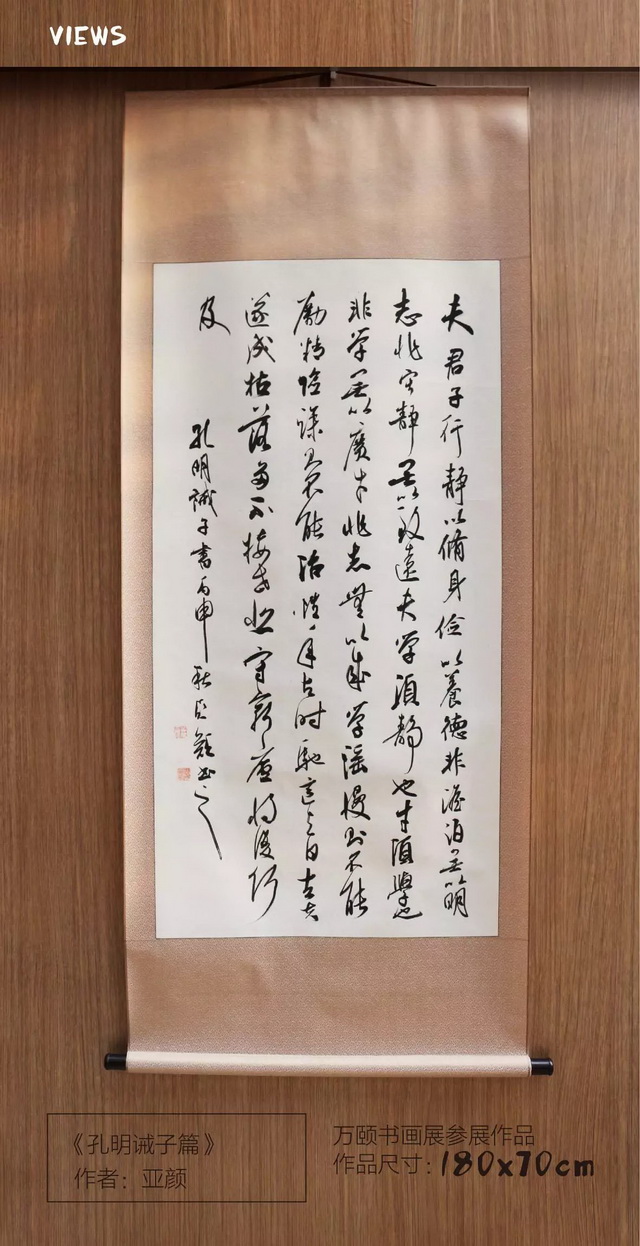 VIEWS
夫君子行静以脩身俭以養德非澹泊无以明
志非宁静无以致遠夫学須静也才須學也
非学无以廣才非志無以成学滛慢则不能
勵精险躁則不能治性年与时馳意与日去
遂成枯落多不接世悲守穷庐将復何
及
孔明诫子書丙申秋亞颜书之
《孔明诫子篇》
作者：亚颜
万颐书画展参展作品
作品尺寸：180x70cm